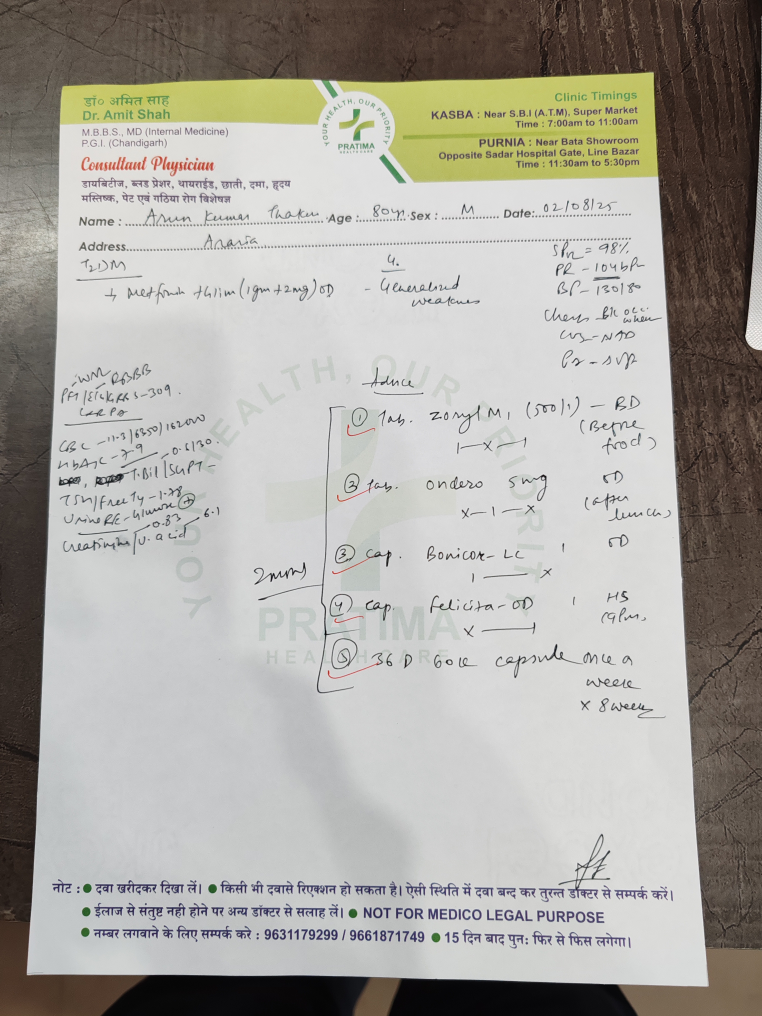 डॉ० अमित साह
Dr. Amit Shah
M.B.B.S., MD (Internal Medicine)
P.G.I. (Chandigarh)
Consultant Physician
डायबिटीज, ब्लड प्रेशर, थायराईड, छाती, दमा, हृदय
मस्तिष्क, पेट एवं गठिया रोग विशेषज्ञ
YOUR HEALTH, OUR PRIORITY
PRATIMA
HEALTH CARE
Clinic Timings
KASBA : Near S.B.I (A.T.M), Super Market
Time : 7:00am to 11:00am
PURNIA : Near Bata Showroom
Opposite Sadar Hospital Gate, Line Bazar
Time : 11:30am to 5:30pm
Name : Arun Kumar Thakur Age : 80yr Sex : M Date: 02/08/25
Address Araria
T2DM
→ Metformin + Glim (1gm + 2mg) OD
- Generalised
weakness
SPO2 = 98%
PR - 104 bpm
BP - 130/80
Chest - B/L occ.
wheeze
CVS - NAD
RBBB
309
CBC - 11.3/6350/162000
HbA1C - 7.9
T.Bil/SGPT - 0.6/30
TSH/Free T4 - 1.78
Urine RE - Glucose +
Creatinine/U. acid 0.83 6.1
Advice
2 months
① Tab. Zoryl M1 (500/1) - BD
(Before
food)
1 - x - 1
② Tab. Ondero 5mg OD
(after
lunch)
x - 1 - x
③ Cap. Bonicor-LC 1 OD
1 — x
④ Cap. Felicita-OD 1 HS
(9pm)
x — 1
⑤ 36 D 60k capsule once a
week
x 8 weeks
YOUR HEALTH, OUR PRIORITY
PRATIMA
HEALTH CARE
नोट : ● दवा खरीदकर दिखा लें। ● किसी भी दवासे रिएक्शन हो सकता है। ऐसी स्थिति में दवा बन्द कर तुरन्त डॉक्टर से सम्पर्क करें।
● ईलाज से संतुष्ट नही होने पर अन्य डॉक्टर से सलाह लें। ● NOT FOR MEDICO LEGAL PURPOSE
● नम्बर लगवाने के लिए सम्पर्क करे : 9631179299 / 9661871749 ● 15 दिन बाद पुनः फिर से फिस लगेगा।